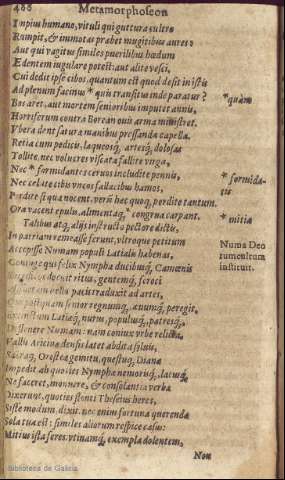 488 Metamorphoseon
Inpius humano, vituli qui guttura cultro
Rumpit, & immotas præbet mugitibus aures?
Aut qui vagitus similes puerilibus hœdum
Edentem iugulare potest: aut alite vesci,
Cui dedit ipse cibos, quantum est quod desit in istis
Ad plenum facinus * quis transitus inde paratur? * quàm
Bos aret, aut mortem senioribus imputet annis,
Horriferum contra Borean ouis arma ministret.
Vbera dent saturæ manibus pressanda capellæ.
Retia cum pedicis, laqueosq́, artesq́, dolosas
Tollite, nec volucres viscata fallite virga,
Nec * formidantes ceruos includite pennis, * formida-
tis
Nec celate cibis vncos fallacibus hamos,
Perdite si qua nocent. verùm hæc quoq, perdite tantum.
Ora vacent epulis, alimentaq, * congrua carpant. * mitia
Talibus atq, alijs instructo pectore dictis,
In patriam remeasse ferunt, vltroque petitum Numa Deo
rum cultum
instituit.
Accepisse Numam populi Latialis habenas,
Coniuge qui felix Nympha ducibusq́, Camœnis
docuit ritus, gentemq́, feroci
bello pacis traduxit ad artes,
postquam senior regnumq́, æuumq́, peregit,
Latiæq́, nurus, populusq́, patresq́,
Deflere Numam: nam coniux vrbe relicta,
Vallis Aricinæ densis latet abdita syluis,
Sacraq, Oresteæ gemitu, questuq́, Dianæ
Impedit ah quoties Nymphæ nemorisq́, lacusq́,
Ne faceret, monuere, & consolantia verba
Dixerunt, quoties flenti Theseius heros,
Siste modum, dixit. nec enim fortuna querenda
Sola tua est: similes aliorum respice casus:
Mitius ista feres. vtinamq́, exempla dolentem,
Non
Biblioteca de Galicia